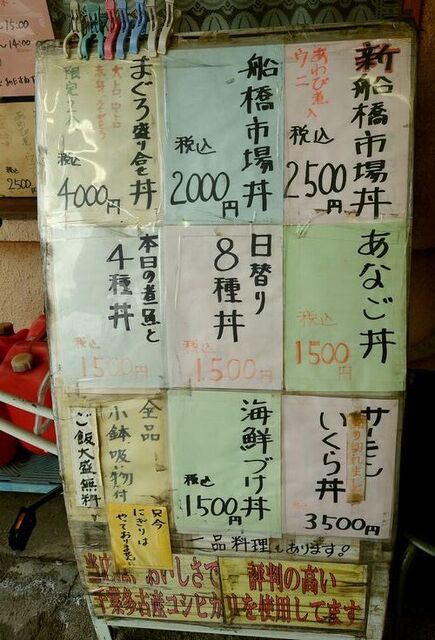 新船橋市場丼
あわび煮入
ウニ
税込
2500円
船橋市場丼
税込
2000円
まぐろ盛り合せ丼
税込
4000円
あなご丼
税込
1500円
日替り
8種丼
税込
1500円
本日の煮魚と
4種丼
税込
1500円
サーモン
いくら丼
3500円
海鮮づけ丼
税込
1500円
全品
小鉢吸い物付
ご飯大盛無料
只今
にぎりは
やっておりません
一品料理もあります!
おいしさで
評判の高い
千葉多古産コシヒカリを使用してます
15:00
14:00
2500